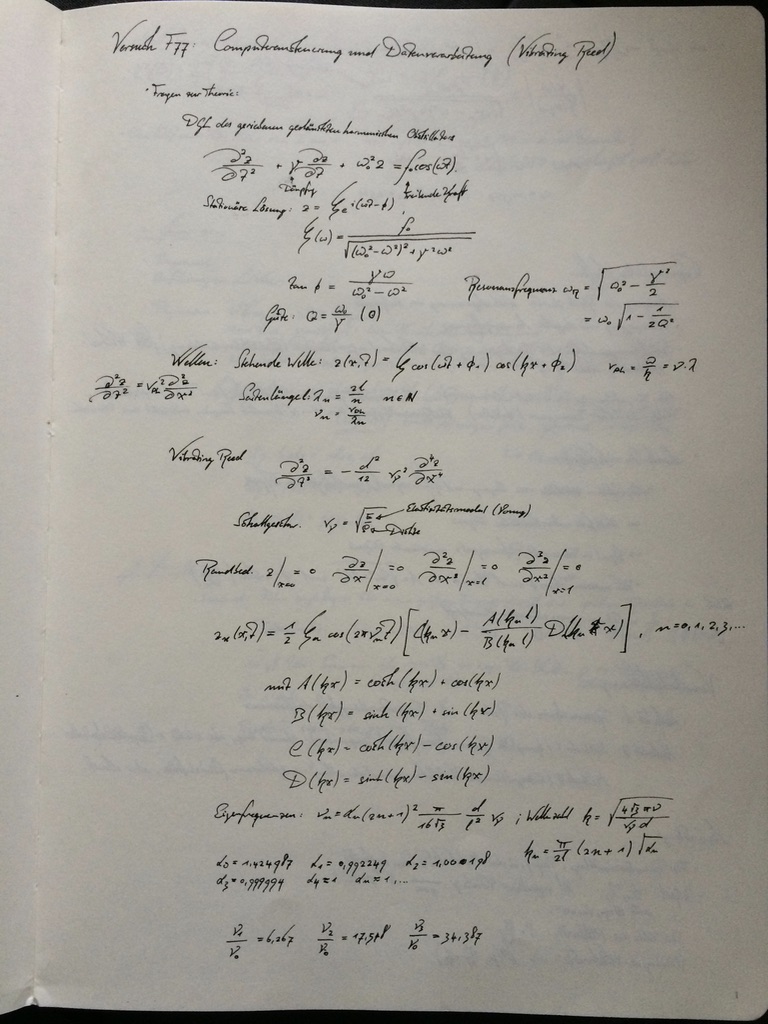 Versuch F77: Computersteuerung und Datenverarbeitung (Vibrating Reed)
• Fragen zur Theorie:
DGL des geriebenen gedämpften harmonischen Oszillators
∂²z/∂t² + γ ∂z/∂t + ω₀² z = f₀ cos(ωt).
Dämpfg treibende Kraft
Stationäre Lösung: z = ξ e^i(ωt-ϕ)
ξ(ω) = f₀ / √((ω₀²-ω²)² + γ²ω²)
tan ϕ = γω / (ω₀²-ω²) Resonanzfrequenz ω_R = √(ω₀² - γ²/2)
Güte: Q = ω₀/γ (0) = ω₀ √(1 - 1/2Q²)
Wellen: Stehende Welle: z(x,t) = ξ cos(ωt + ϕ₁) cos(kx + ϕ₂) v_ph = ω/k = ν·λ
∂²z/∂t² = v_ph² ∂²z/∂x² λ_n = 2l/n n ∈ ℕ
ν_n = v_ph/λ_n
Vibrating Reed ∂²z/∂t² = - d²/12 v_p² ∂⁴z/∂x⁴
v_p = √(E/ρ) Elastizitätsmodul (Young)
Dichte
Randbed. z|x=0 = 0 ∂z/∂x|x=0 = 0 ∂²z/∂x²|x=l = 0 ∂³z/∂x³|x=l = 0
z_n(x,t) = 1/2 ξ_n cos(2πν_n t) [C(k_n x) - A(k_n l)/B(k_n l) D(k_n x)], n = 0,1,2,3,...
mit A(kx) = cosh(kx) + cos(kx)
B(kx) = sinh(kx) + sin(kx)
C(kx) = cosh(kx) - cos(kx)
D(kx) = sinh(kx) - sin(kx)
Eigenfrequenzen: ν_n = α_n (2n+1)² π/16√3 d/l² v_p ; Wellzahl k = √(4√3πν / v_p d)
k_n = π/2l (2n+1) √α_n
α₀ = 1,424987 α₁ = 0,992249 α₂ = 1,000198
α₃ = 0,999994 α₄ ≈ 1 α_n ≈ 1,...
ν₁/ν₀ = 6,267 ν₂/ν₀ = 17,548 ν₃/ν₀ = 34,387